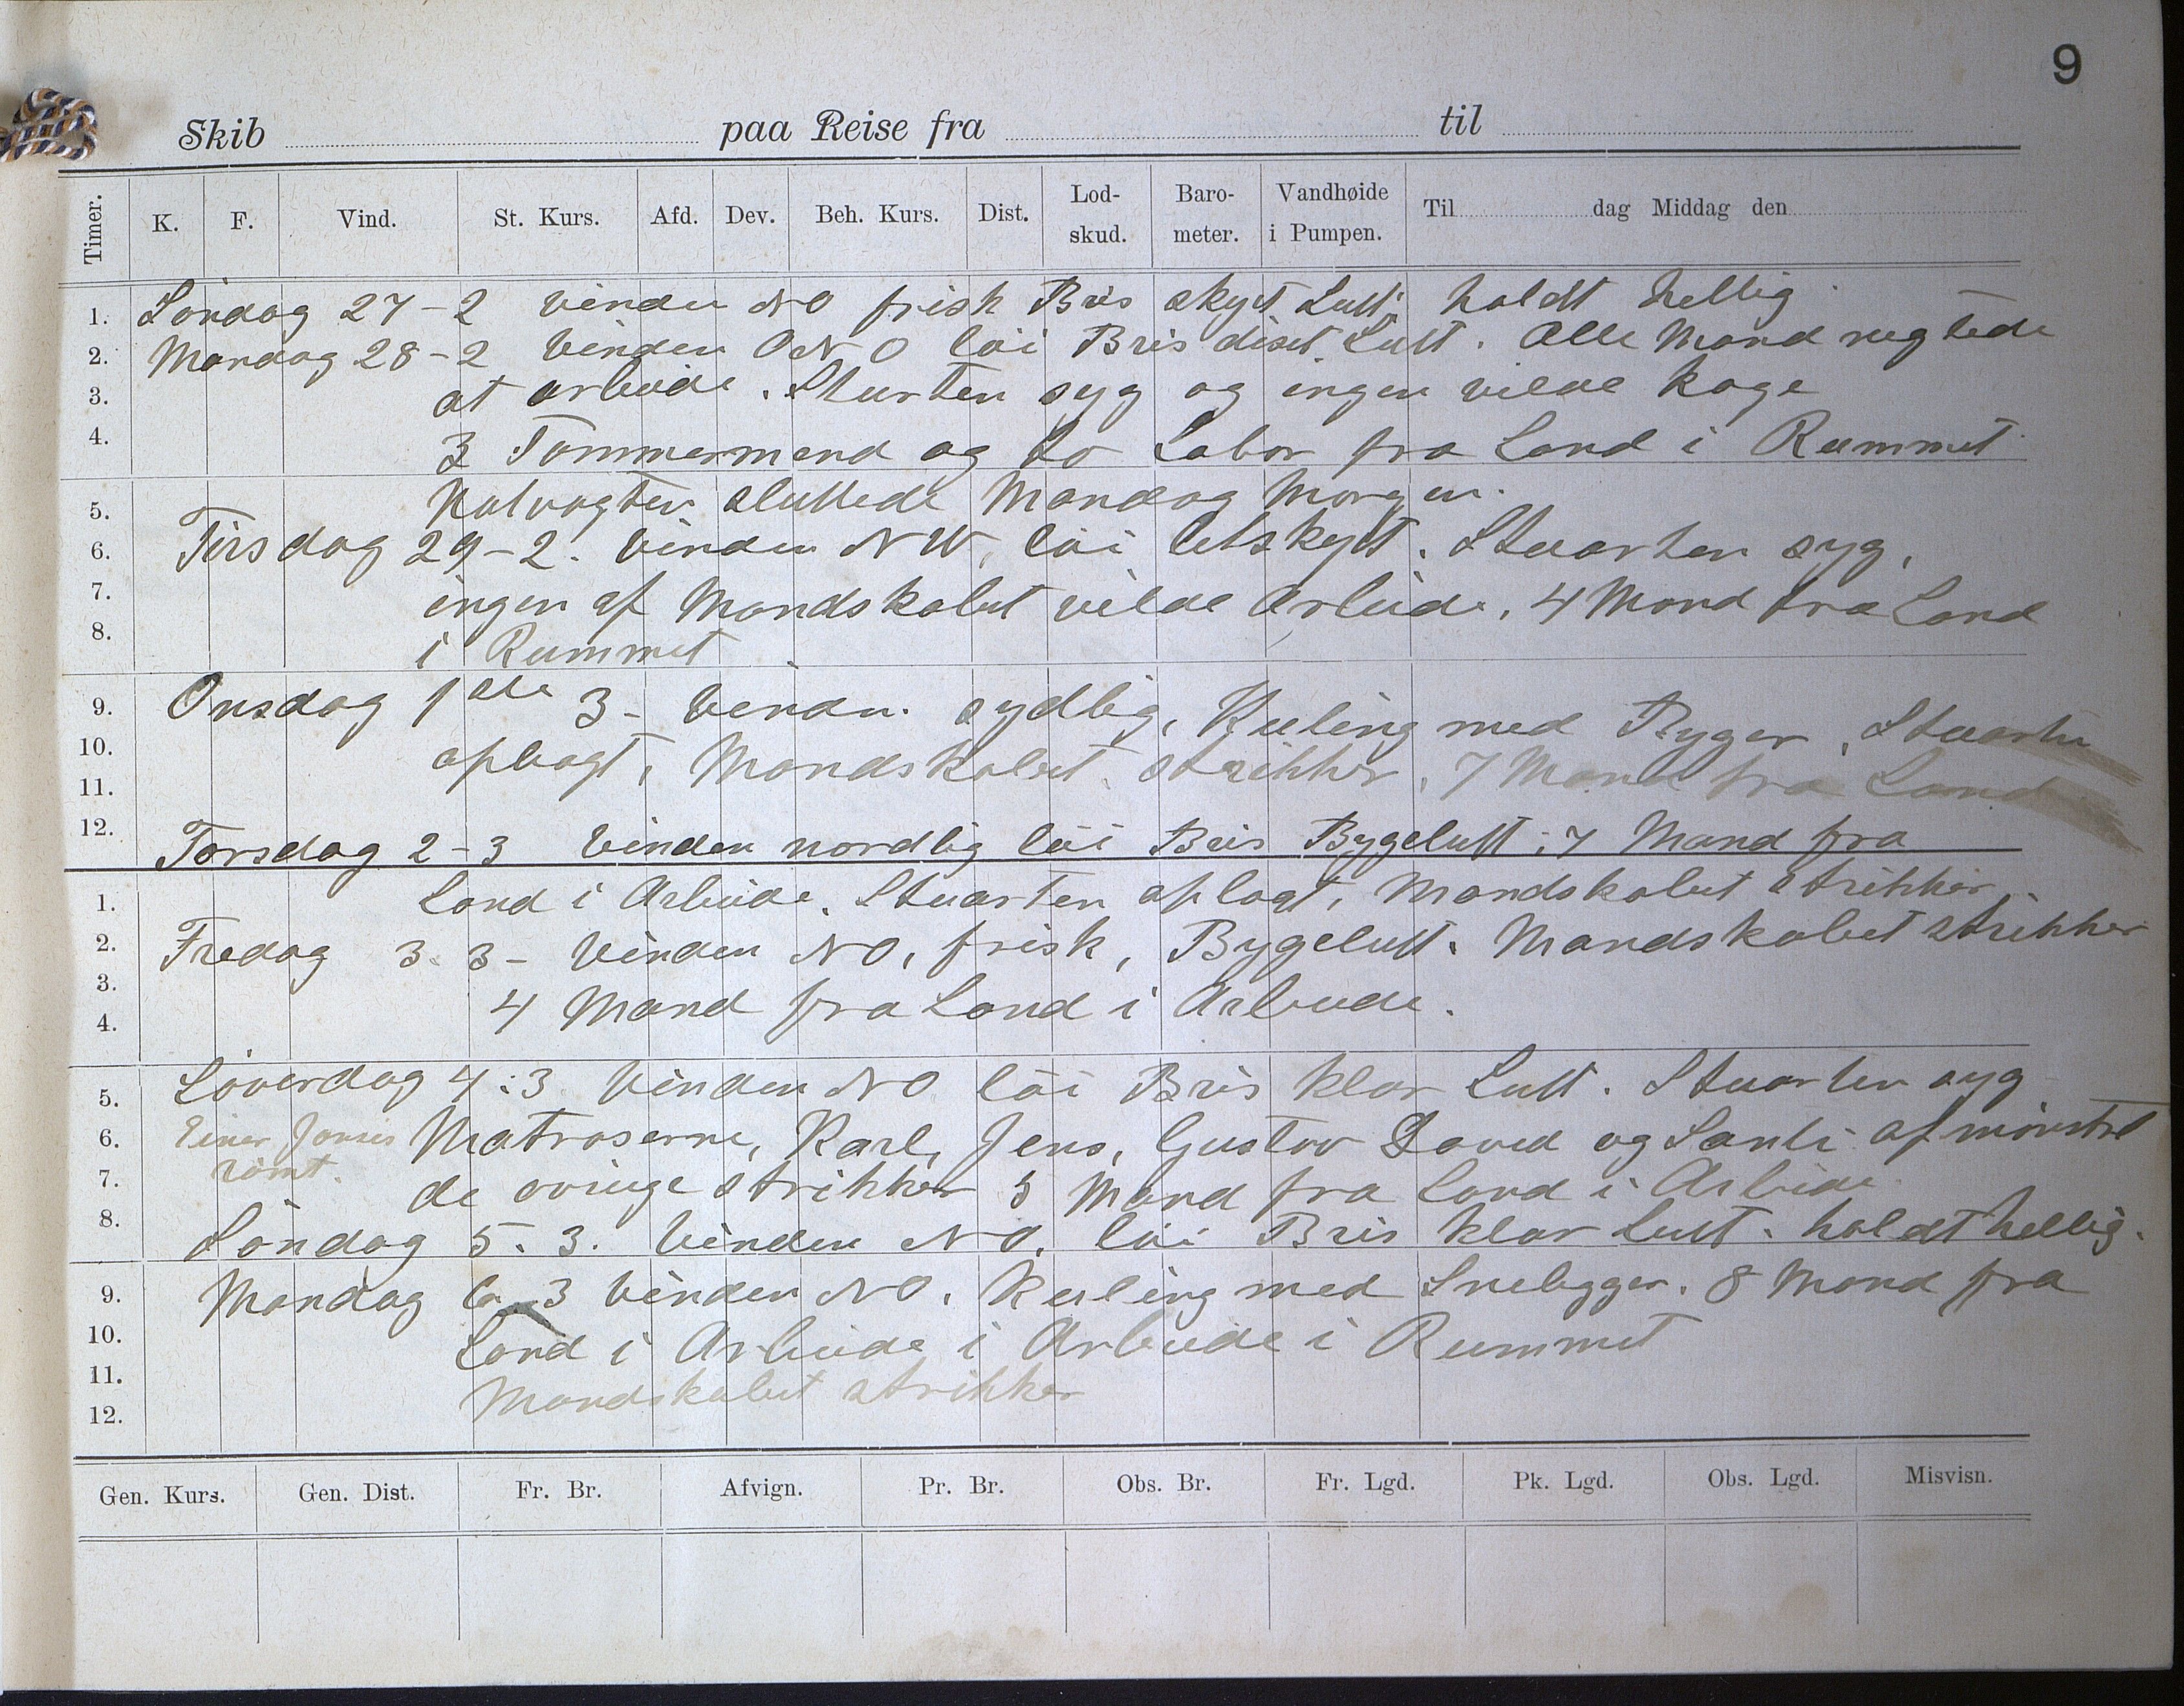 9
Skib paa Reise fra til
Timer. K. F. Vind. St. Kurs. Afd. Dev. Beh. Kurs. Dist. Lod-skud. Baro-meter. Vandhøide i Pumpen. Til dag Middag den
1. Søndag 27-2 vinden NO frisk Bris skyet Luft; holdt hellig
2. Mandag 28-2 Vinden ONO löi Bris diset Luft. Alle Mand negtede
3. at arbeide. Stuerten syg og ingen vilde koge
4. 3 Tömmermend og to Labor fra Land i Rummet
5. Natvagten sluttede Mandag Morgen.
6. Tirsdag 29-2. Vinden NW, löi letskyet. Stuarten syg,
7. ingen af Mandskabet vilde Arbeide. 4 Mand fra Land
8. i Rummet
9. Onsdag 1ste 3- Vinden sydlig, Kuling med Byger, Stuarten
10. oplagt, Mandskabet strikker, 7 Mand fra Land
11.
12. Torsdag 2-3 Vinden nordlig löi Bris Bygeluft; 7 Mand fra
1. Land i Arbeide. Stuarten oplagt, Mandskabet strikker.
2. Fredag 3.3- Vinden NO, frisk, Bygeluft. Mandskabet strikker
3. 4 Mand fra Land i Arbeide.
4.
5. Löverdag 4:3. Vinden NO löi Bris klar Luft. Stuarten syg
6. Einar Jonsen Matroserne, Karl, Jens, Gustav David og Santi afmönstret
7. römt. de övrige strikker 5 Mand fra Land i Arbeide
8. Söndag 5.3. Vinden NO. löi Bris klar Luft. holdt hellig.
9. Mandag 6.3 Vinden NO. Kuling med Snebygger. 8 Mand fra
10. Land i Arbeide i Arbeide i Rummet
11. Mandskabet strikker
12.
Gen. Kurs. Gen. Dist. Fr. Br. Afvign. Pr. Br. Obs. Br. Fr. Lgd. Pk. Lgd. Obs. Lgd. Misvisn.